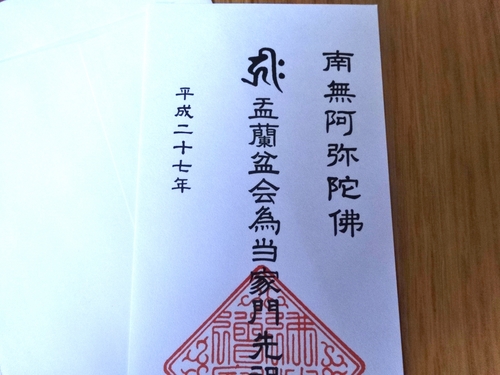 南無阿弥陀佛
盂蘭盆会為当家門先祖
平成二十七年